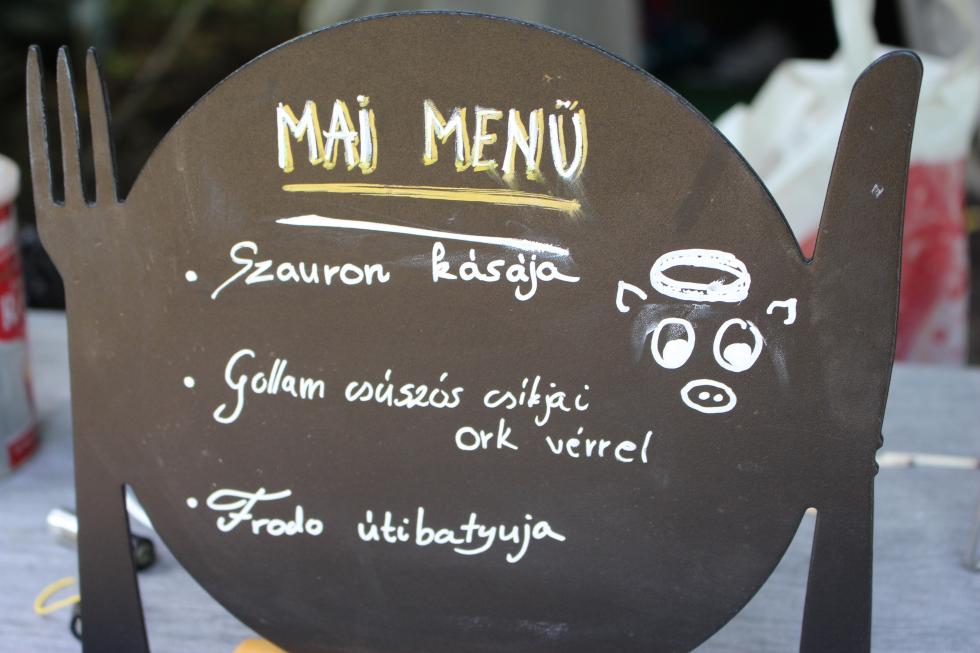 MAI MENÜ
• Szauron kásája
• Gollam csúszós csíkjai
ork vérrel
• Frodo útibatyuja